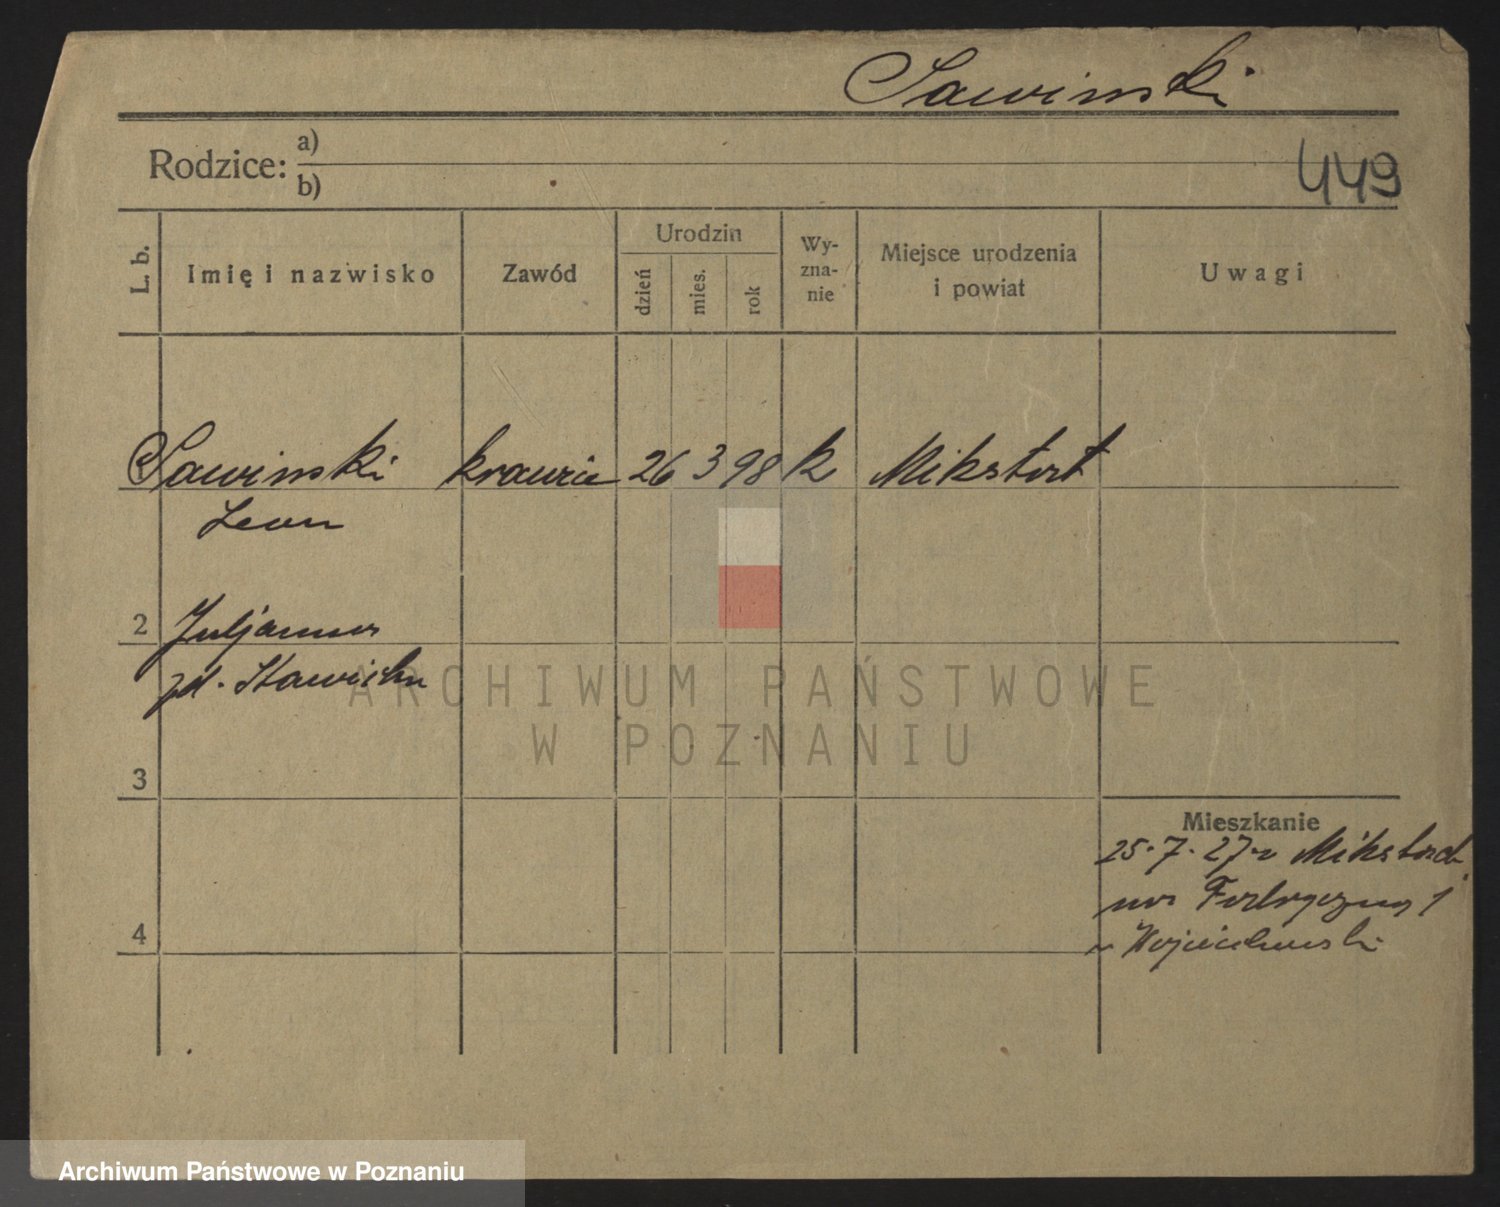 Sawinski
Rodzice: a)
b)
449
L. b.
Imię i nazwisko
Zawód
Urodzin
dzień
mies.
rok
Wy-
zna-
nie
Miejsce urodzenia
i powiat
Uwagi
Sawinski krawiec 26 3 98 k Mikstat
Leon
2 Juljanna
zd. Stawicka
3
Mieszkanie
25.7.27 z Mikstat
na Fabryczną 1
4
u Wojciechowski
ARCHIWUM PAŃSTWOWE
W POZNANIU
Archiwum Państwowe w Poznaniu